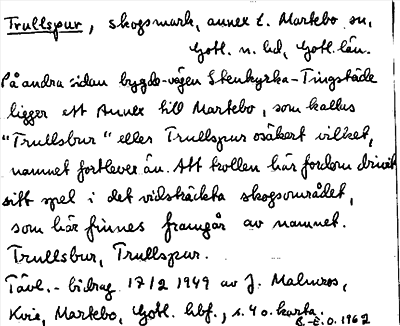 Trullspur, skogsmark, annex t. Martebo sn,
Gotl. n. hd, Gotl. län.
På andra sidan bygds-vägen Stenkyrka-Tingstäde
ligger ett Annex till Martebo, som kallas
"Trullsbur" eller Trullspur osäkert vilket,
namnet fortlever än. Att trollen här fordom drivit
sitt spel i det vidsträckta skogsområdet,
som här finnes framgår av namnet.
Trullsbur, Trullspur.
Tävl.-bidrag 17/2 1949 av J. Malmros,
Kvie, Martebo, Gotl. hbf., s. 4 o. karta.
E. E. O. 1962